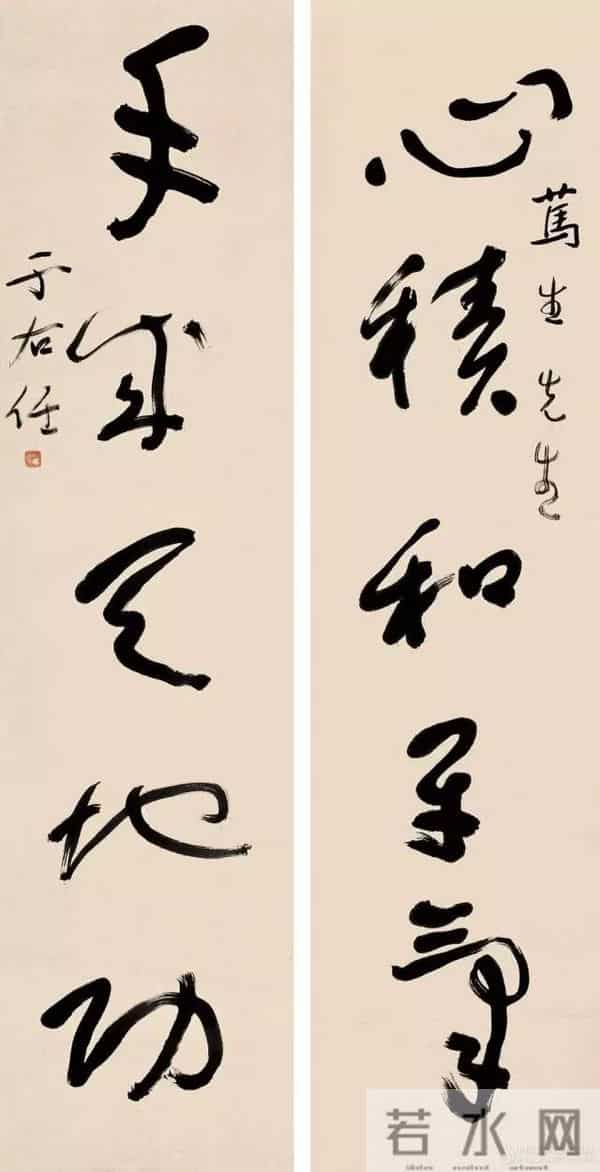 篤生先生
心積和平氣
手成天地功
于右任
若水网